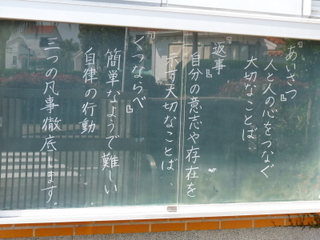 『あいさつ』
人と人の心をつなぐ
大切なことば
『返事』
自分の意志や存在を
示す大切なことば
『くつならべ』
簡単なようで難しい
自律の行動
三つの凡事徹底します。